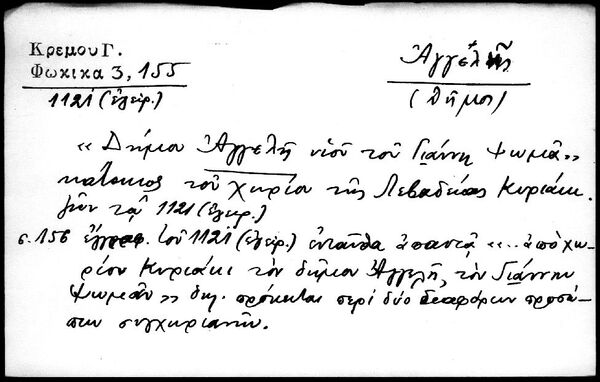 Κρεμου Γ.
Φωκικα 3, 155
1121 (ἐγειρ.)
Ἀγγελῆς
(Δῆμος)
« Δήμον Ἀγγελῆ υἱοῦ τοῦ Γιάννη Ψωμᾶ »
κάτοικος τοῦ χωρίου τῆς Λεβαδείας Κυριάκι.
1121 (ἐγειρ.)
σ. 156 ἔγγραφ. τοῦ 1121 (ἐγειρ.) ἐνταῦθα ἀπαντᾶ «..ἀπὸ χω-
ρίον Κυριάκι τὸν δῆμον Ἀγγελῆ, τὸν Γιάννην
Ψωμᾶν » δηλ. πρόκειται περὶ δύο διαφόρων προσώ-
πων συγχωριανῶν.